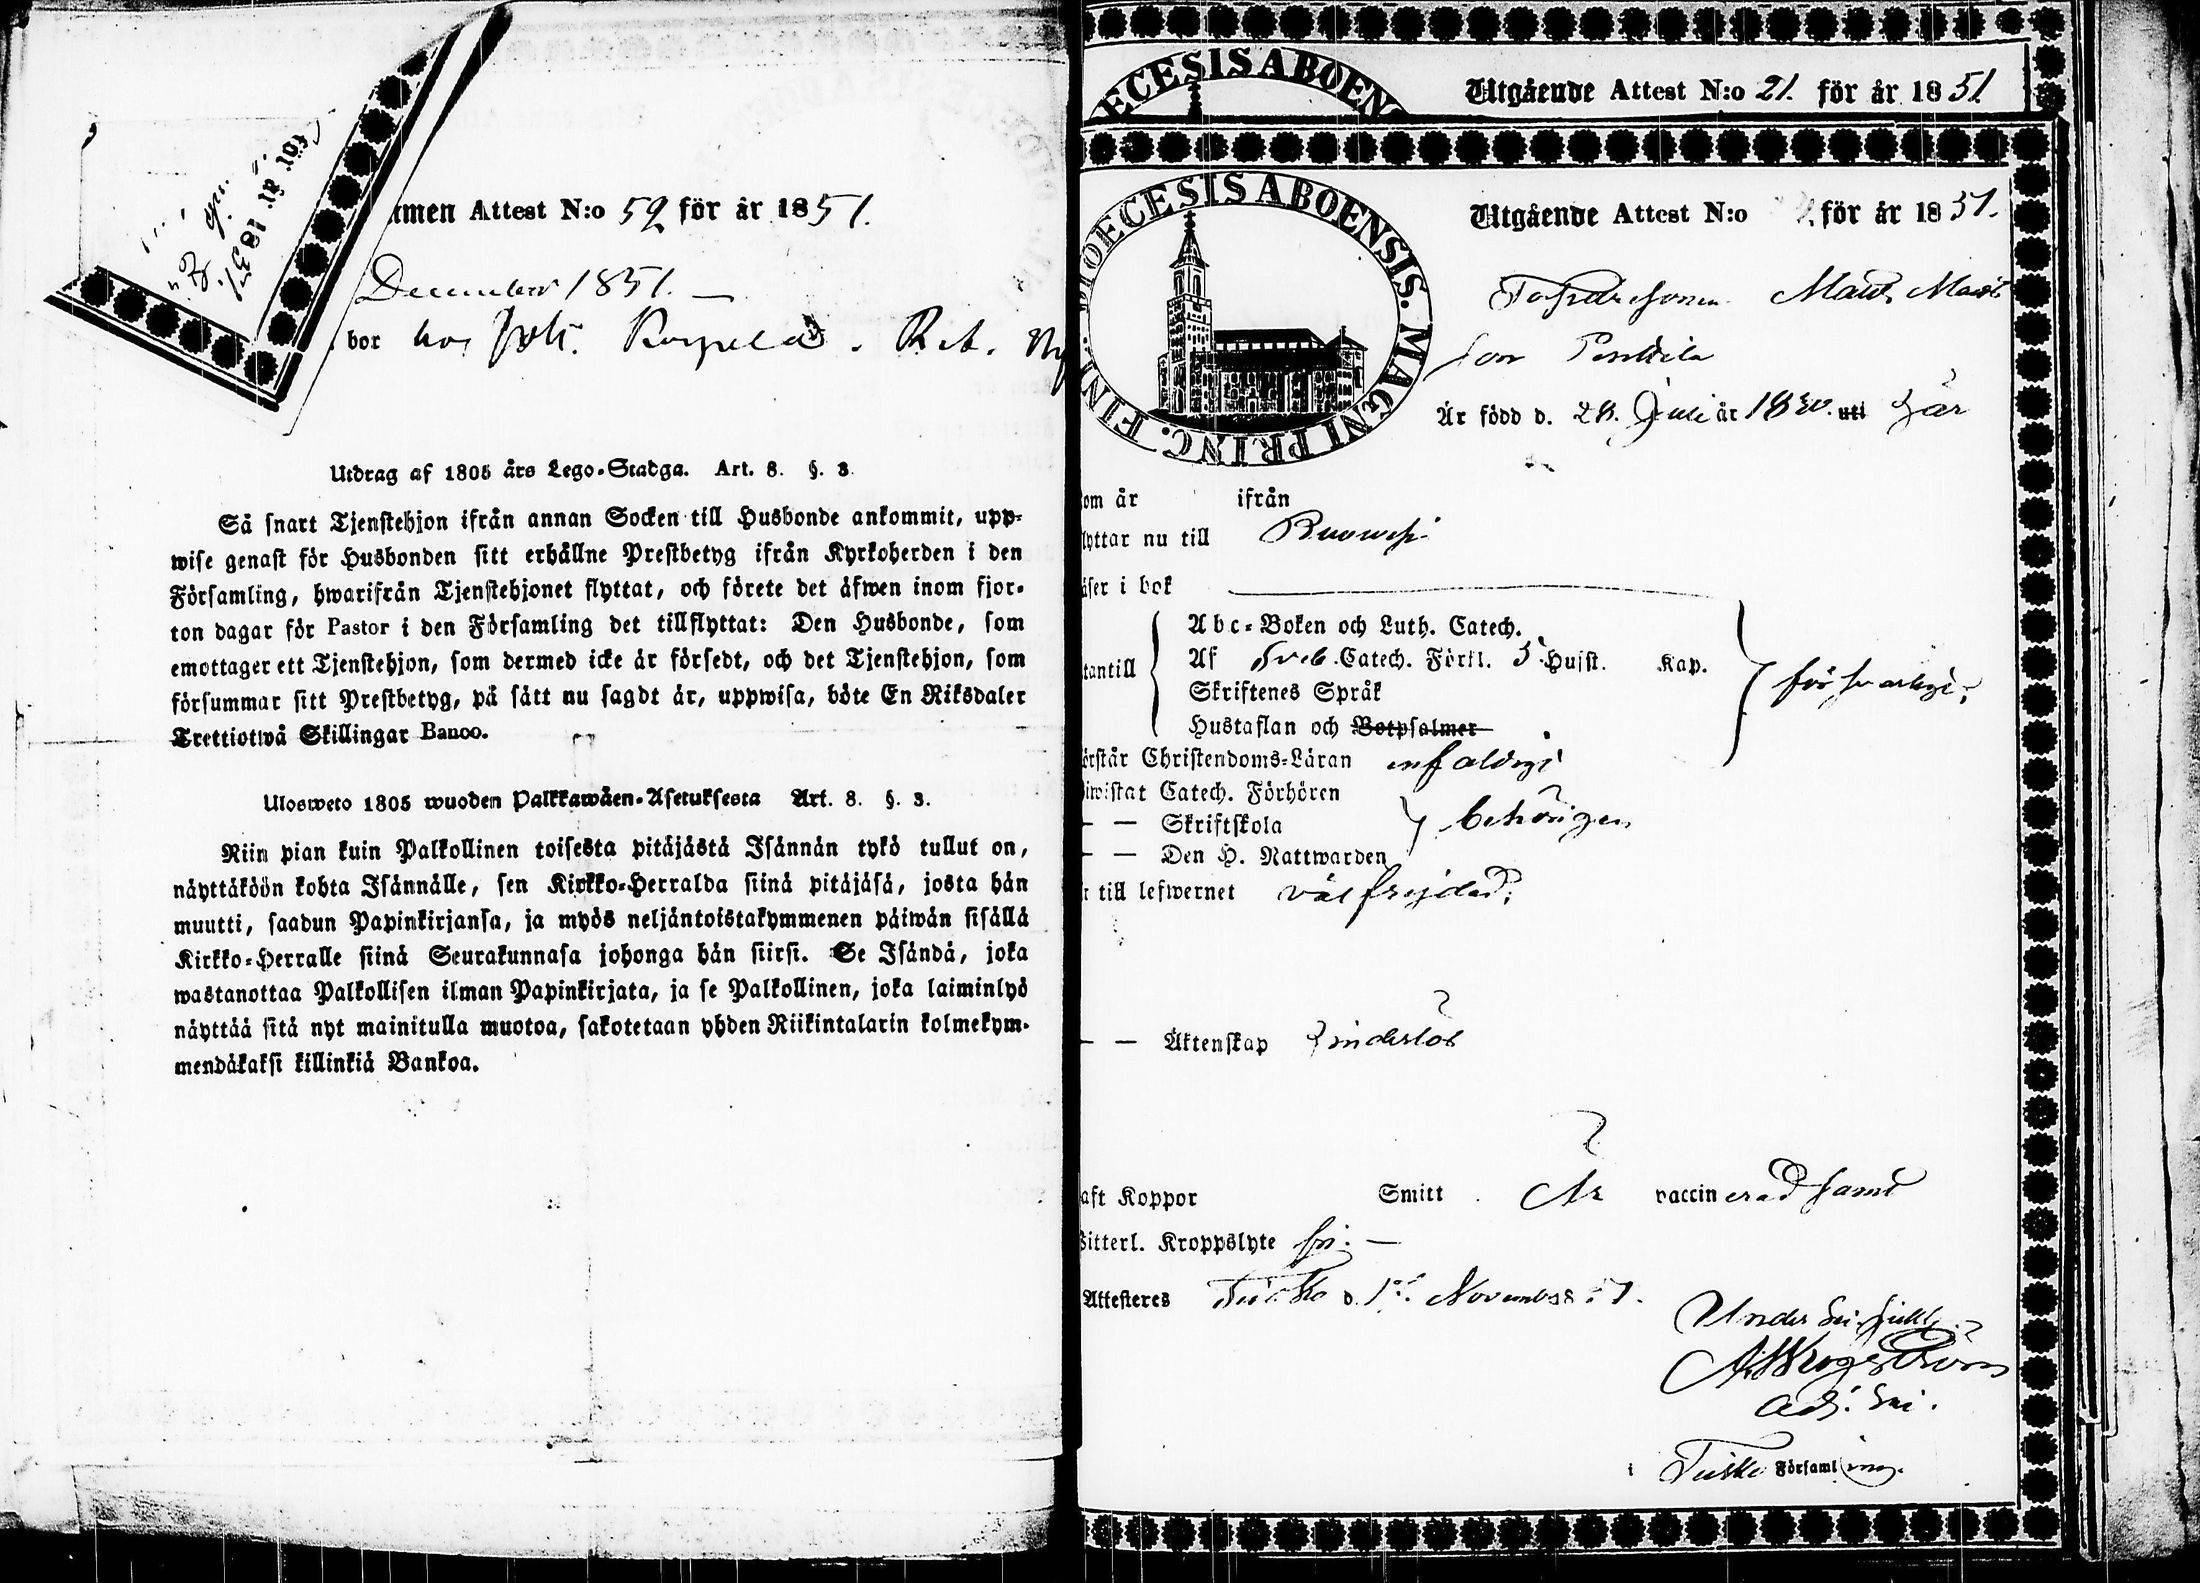 för år 1851.
mmen Attest N:o 59 för år 1851.
December 1851. —
bor hos Joh.
Utdrag af 1805 års Lego-Stadga. Art. 8. §. 3.
Så snart Tjenstehjon ifrån annan Socken till Husbonde ankommit, upp-
wise genast för Husbonden sitt erhållne Prestbetyg ifrån Kyrkoherden i den
Församling, hwarifrån Tjenstehjonet flyttat, och förete det äfwen inom fjor-
ton dagar för Pastor i den Församling det tillflyttat: Den Husbonde, som
emottager ett Tjenstehjon, som dermed icke är försedt, och det Tjenstehjon, som
försummar sitt Prestbetyg, på sätt nu sagdt är, uppwisa, böte En Riksdaler
Trettiotwå Skillingar Banco.
Ulosweto 1805 wuoden Palkkawäen-Asetuksesta Art. 8. §. 3.
Niin pian kuin Palkollinen toisesta pitäjästä Isännän tykö tullut on,
näyttäköön kohta Isännälle, sen Kirkko-Herralda siinä pitäjäsä, josta hän
muutti, saadun Papinkirjansa, ja myös neljäntoistakymmenen päiwän sisällä
Kirkko-Herralle siinä Seurakunnasa johonga hän siirsi. Se Isändä, joka
wastanottaa Palkollisen ilman Papinkirjata, ja se Palkollinen, joka laiminlyö
näyttää sitä nyt mainitulla muotoa, sakotetaan yhden Riikintalarin kolmekym-
mendäkaksi killinkiä Bankoa.
ECESIS ABOEN
Utgående Attest N:o 21. för år 1851.
DIOECESIS ABOENSIS. MAGNI PRINC. FINL.
Utgående Attest N:o för år 1851.
Matts Matts
son Penttila
Är född d. 28. Juli år 1830. uti här
om år ifrån
lyttar nu till Ruowesi
äser i bok
tantill
Abc-Boken och Luth. Catech.
Af Sveb. Catech. Förkl. 3 Husst. Kap.
Skriftenes Språk
Hustaflan och Botpsalmer
försvarligt;
örstår Christendoms-Läran enfaldigt
iwistat Catech. Förhören
— — Skriftskola
— — Den H. Nattwarden
behörigen
r till lefwernet välfrejdad;
— — Äktenskap hinderlös
aft Koppor Smitt. Är vaccinerad samt
itterl. Kroppslyte fri. —
Attesteres d. 1st. November 51.
Adj.
i Församling.